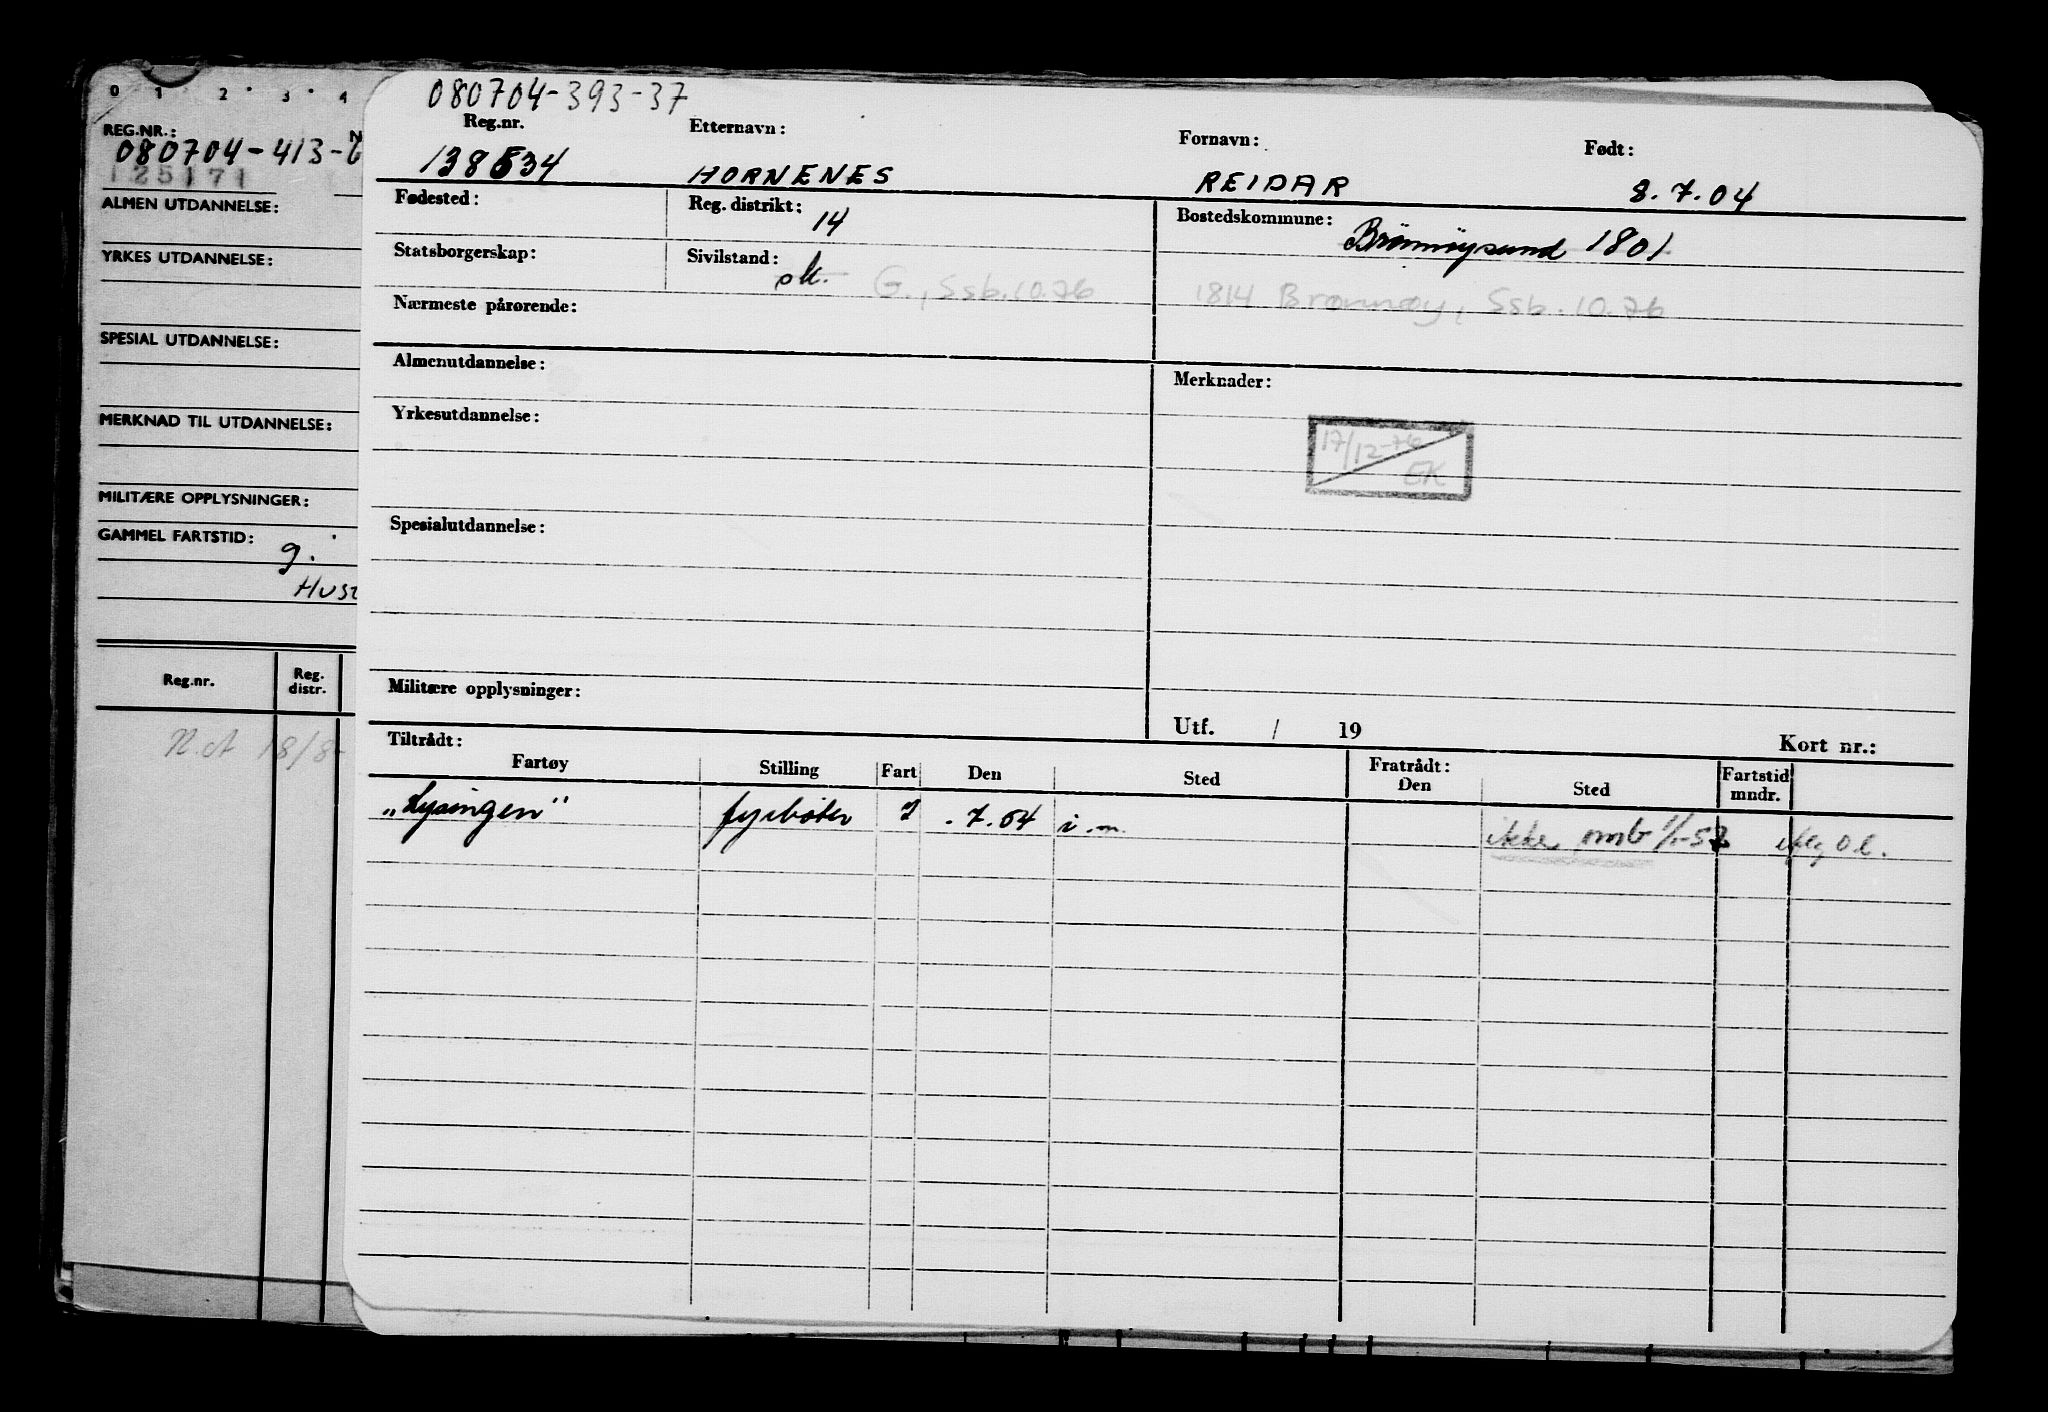 0 1 2 3 4
REG.NR.:
080704-413-
125171
ALMEN UTDANNELSE:
YRKES UTDANNELSE:
SPESIAL UTDANNELSE:
MERKNAD TIL UTDANNELSE:
MILITÆRE OPPLYSNINGER:
GAMMEL FARTSTID:
g.
HUST
Reg.nr. Reg. distr.
18/8-
080704-393-37
Reg.nr. Etternavn: Fornavn: Født:
138534 HORNENES REIDAR 8.7.04
Fødested: Reg. distrikt: 14 Bostedskommune: Brønnøysund 1801
Statsborgerskap: Sivilstand: G., Ssb.10.76 1814 Brønnøy, Ssb.10.76
Nærmeste pårørende:
Almenutdannelse: Merknader:
Yrkesutdannelse: 17/12-76 EK
Spesialutdannelse:
Militære opplysninger:
Utf. / 19 Kort nr.:
Tiltrådt: Fratrådt:
Fartøy Stilling Fart Den Sted Den Sted Fartstid mndr.
„Lysingen" fyrbøter .7.54 i.m. ikke omb 1/1-57